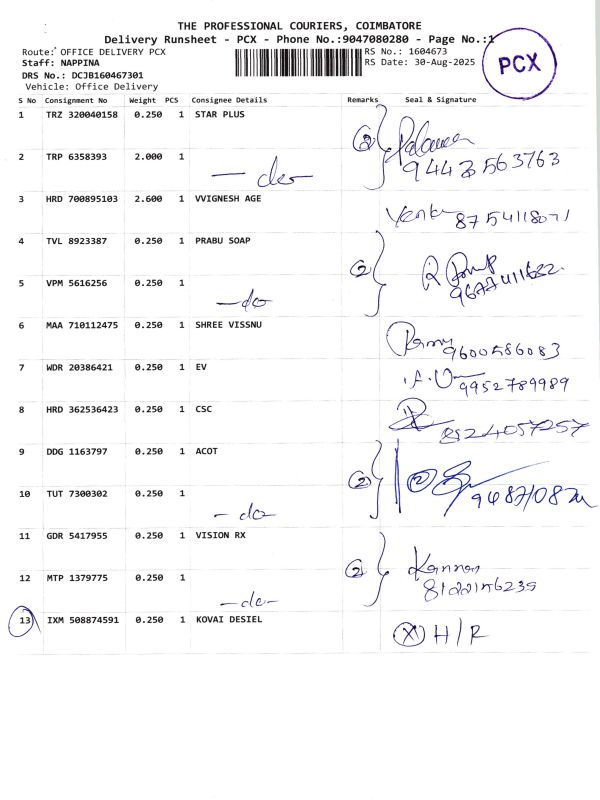 THE PROFESSIONAL COURIERS, COIMBATORE
Delivery Runsheet - PCX - Phone No.:9047080280 - Page No.:1
Route: OFFICE DELIVERY PCX
RS No.: 1604673
Staff: NAPPINA
RS Date: 30-Aug-2025
DRS No.: DCJB160467301
Vehicle: Office Delivery
PCX
S No Consignment No Weight PCS Consignee Details Remarks Seal & Signature
1 TRZ 320040158 0.250 1 STAR PLUS
2 TRP 6358393 2.000 1 — do — (2) 94435 63763
3 HRD 700895103 2.600 1 VVIGNESH AGE
8754118071
4 TVL 8923387 0.250 1 PRABU SOAP
5 VPM 5616256 0.250 1 — do (2)
6 MAA 710112475 0.250 1 SHREE VISSNU
9600586083
7 WDR 20386421 0.250 1 EV
9952789989
8 HRD 362536423 0.250 1 CSC
8124057257
9 DDG 1163797 0.250 1 ACOT
10 TUT 7300302 0.250 1 — do (2) (2)
11 GDR 5417955 0.250 1 VISION RX
12 MTP 1379775 0.250 1 — do — (2) Kannan
13 IXM 508874591 0.250 1 KOVAI DESIEL (X) H/R